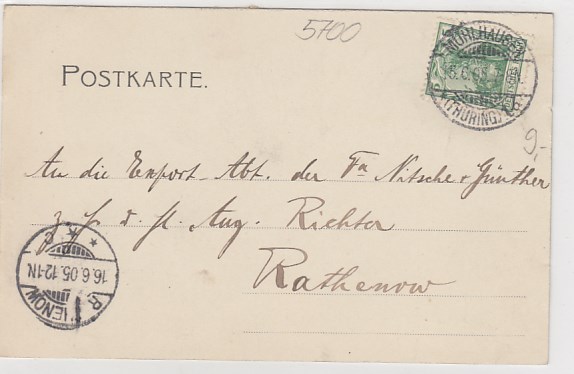 5700
POSTKARTE.
MÜHLHAUSEN
(THÜRING)
9,-
An die Export-Abt. der Fa Nitsche & Günther
Aug. Richter
Rathenow
16.6.05.12-1N.